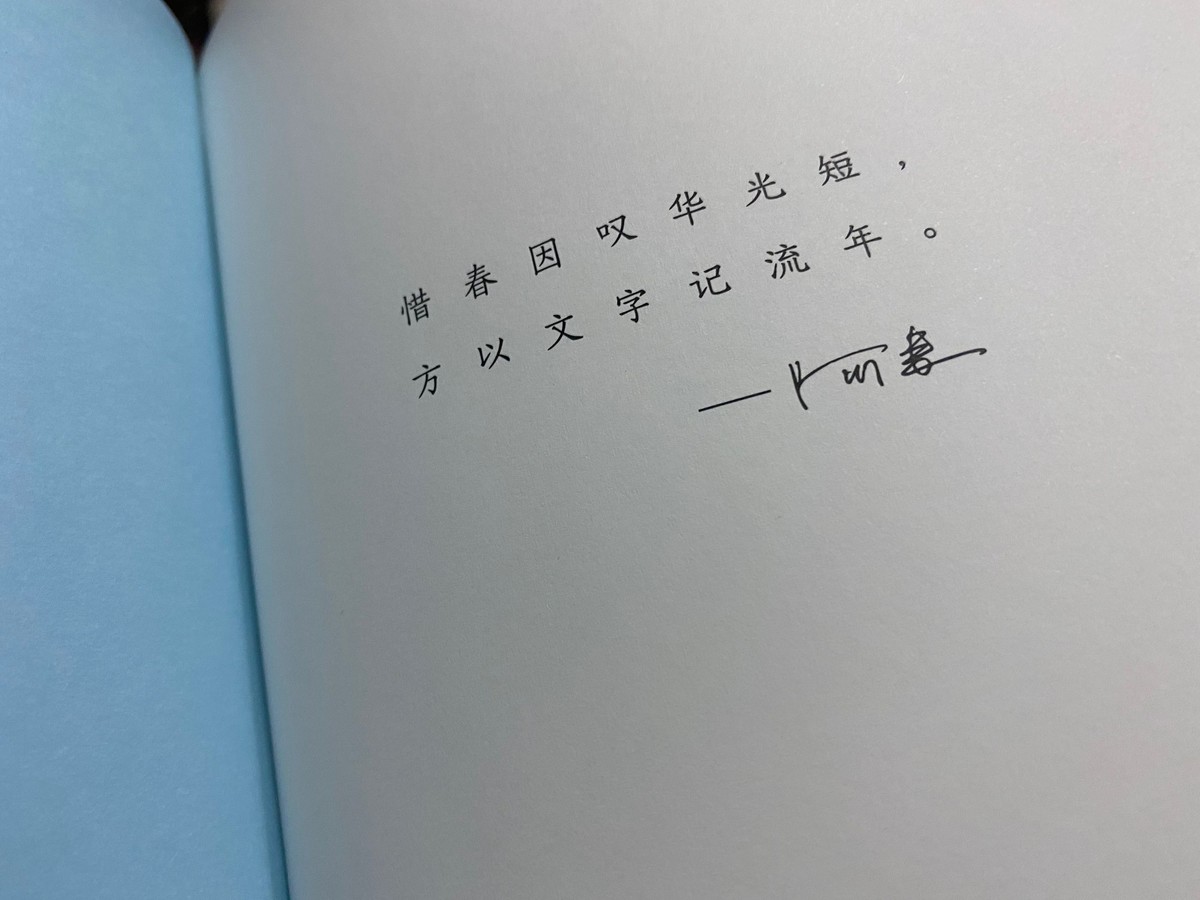 惜春因叹华光短，
方以文字记流年。